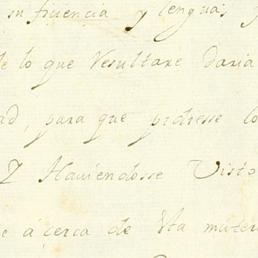 su ficiencia y lenguas
de lo que Resultare daria
ad, para que pidiesse lo
Y Haviendosse Visto
e à cerca de Vta mater